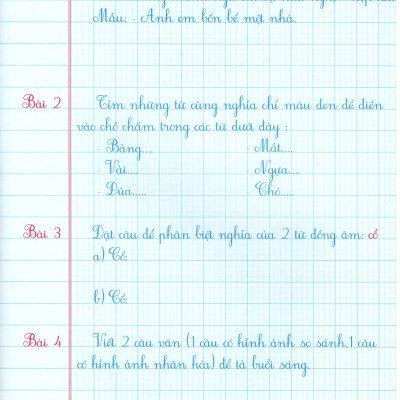 Mẫu: - Anh em bốn bể một nhà.
Bài 2 Tìm những từ cùng nghĩa chỉ màu đen để điền
vào chỗ chấm trong các từ dưới đây :
- Bảng.... - Mắt....
- Vải.... - Ngựa....
- Đũa..... - Chó....
Bài 3 Đặt câu để phân biệt nghĩa của 2 từ đồng âm: cổ
a) Cổ:
b) Cổ:
Bài 4 Viết 2 câu văn (1 câu có hình ảnh so sánh,1 câu
có hình ảnh nhân hóa) để tả buổi sáng.